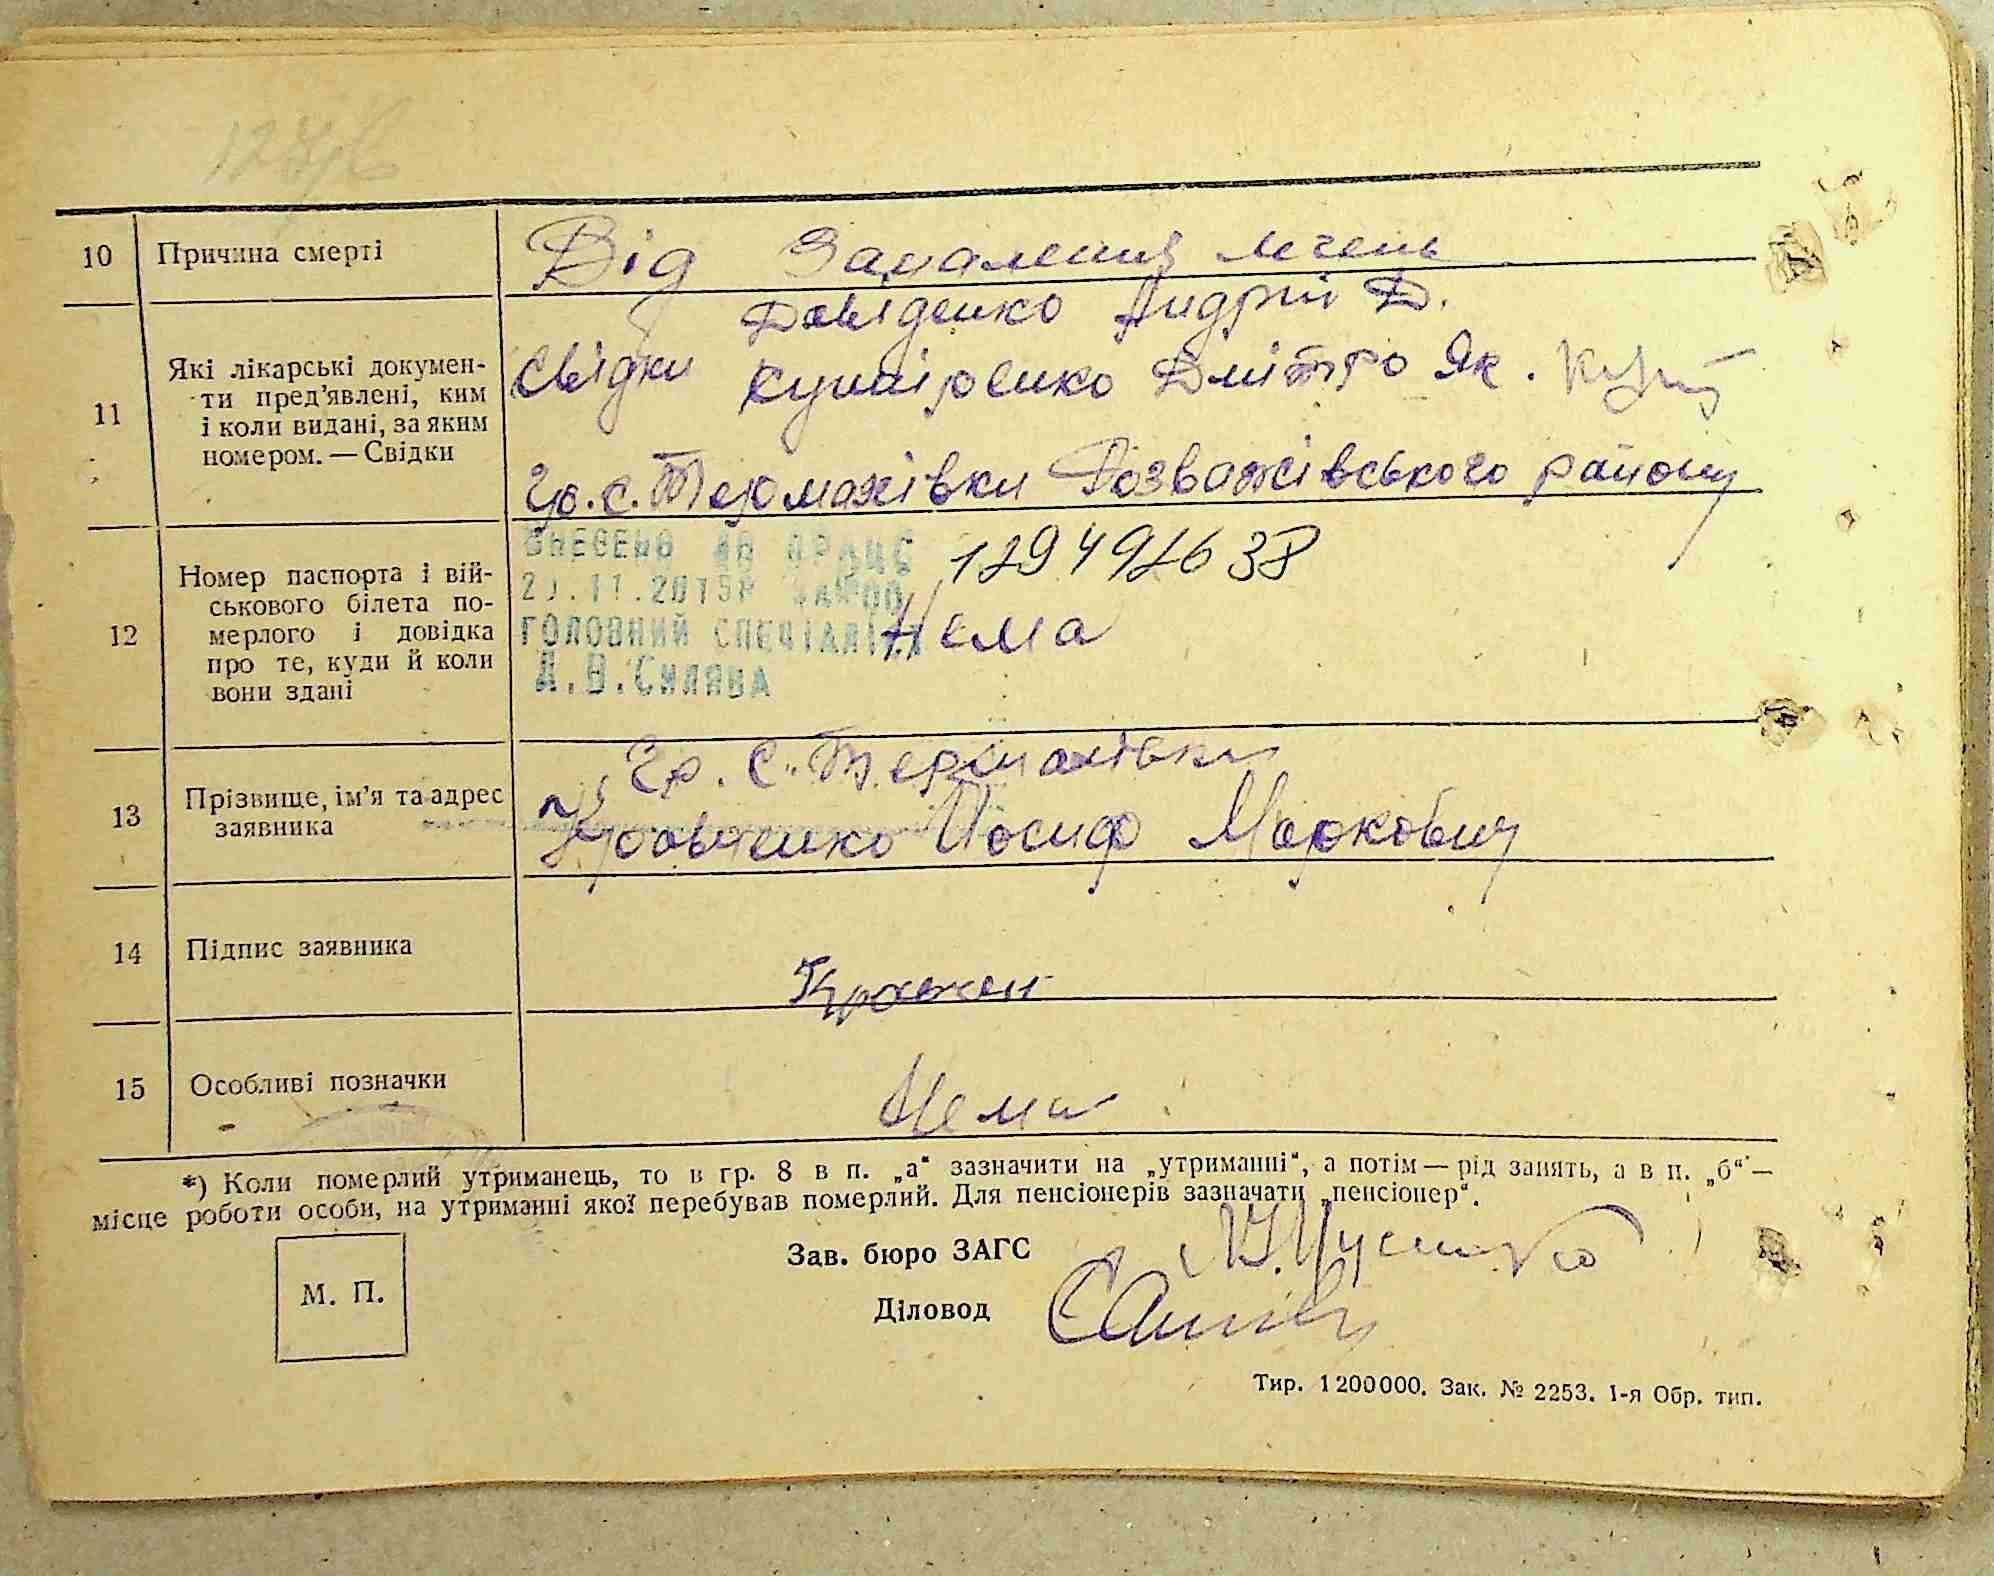 10 Причина смерті Від Запалення легень
Давіденко Андрій Д.
11 Які лікарські докумен-
ти пред'явлені, ким
і коли видані, за яким
номером. — Свідки
Свідки Кушніренко Дмітро Як.
Гр. с. Термахівки Розважівського району
12 Номер паспорта і вій-
ськового білета по-
мерлого і довідка
про те, куди й коли
вони здані
ВНЕСЕНО ДО ДРАЦС
129491638
.11.2015Р
ГОЛОВНИЙ СПЕЦІАЛІСТ
Нема
Гр. с. Термахівки
13 Прізвище, ім'я та адрес
заявника
Кравченко Йосиф Маркович
14 Підпис заявника
15 Особливі позначки Нема
*) Коли померлий утриманець, то в гр. 8 в п. „а“ зазначити на „утриманні“, а потім — рід занять, а в п. „б“ —
місце роботи особи, на утриманні якої перебував померлий. Для пенсіонерів зазначати „пенсіонер“.
Зав. бюро ЗАГС
М. П.
Діловод
Тир. 1200000. Зак. № 2253. 1-я Обр. тип.